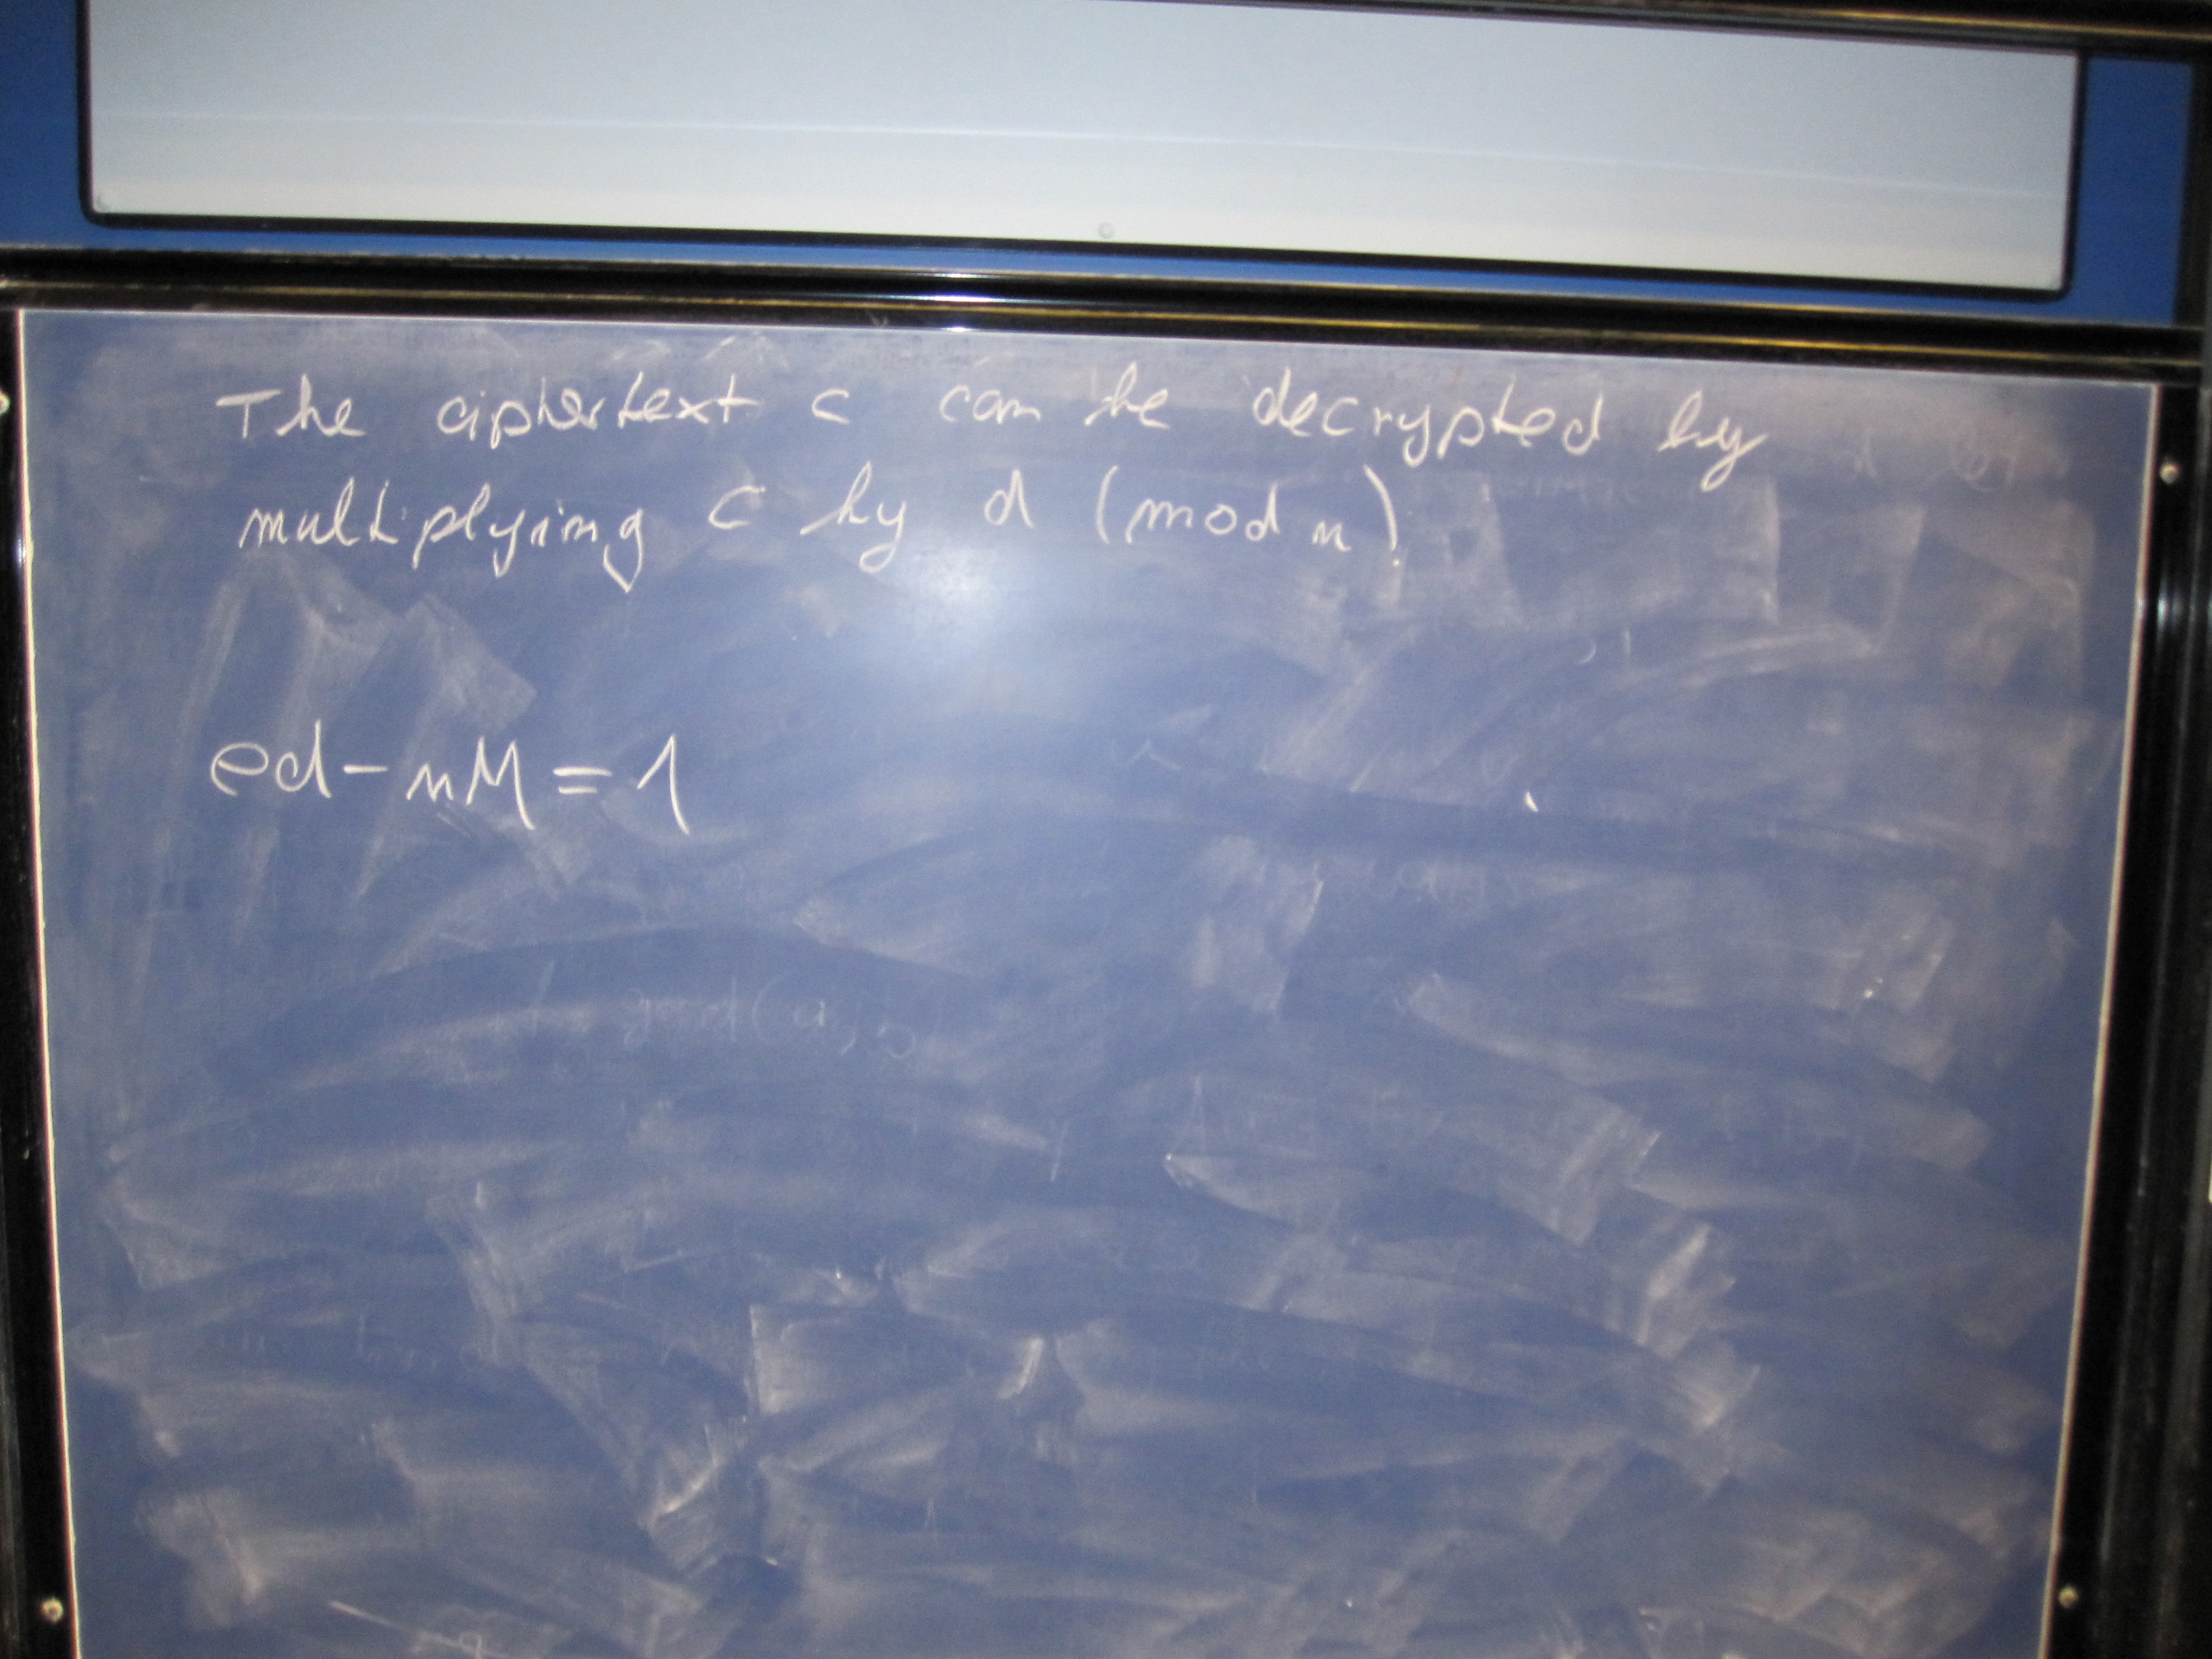 The ciphertext c can be decrypted by
multiplying c by d (mod n).
ed - nM = 1
gcd(a, b